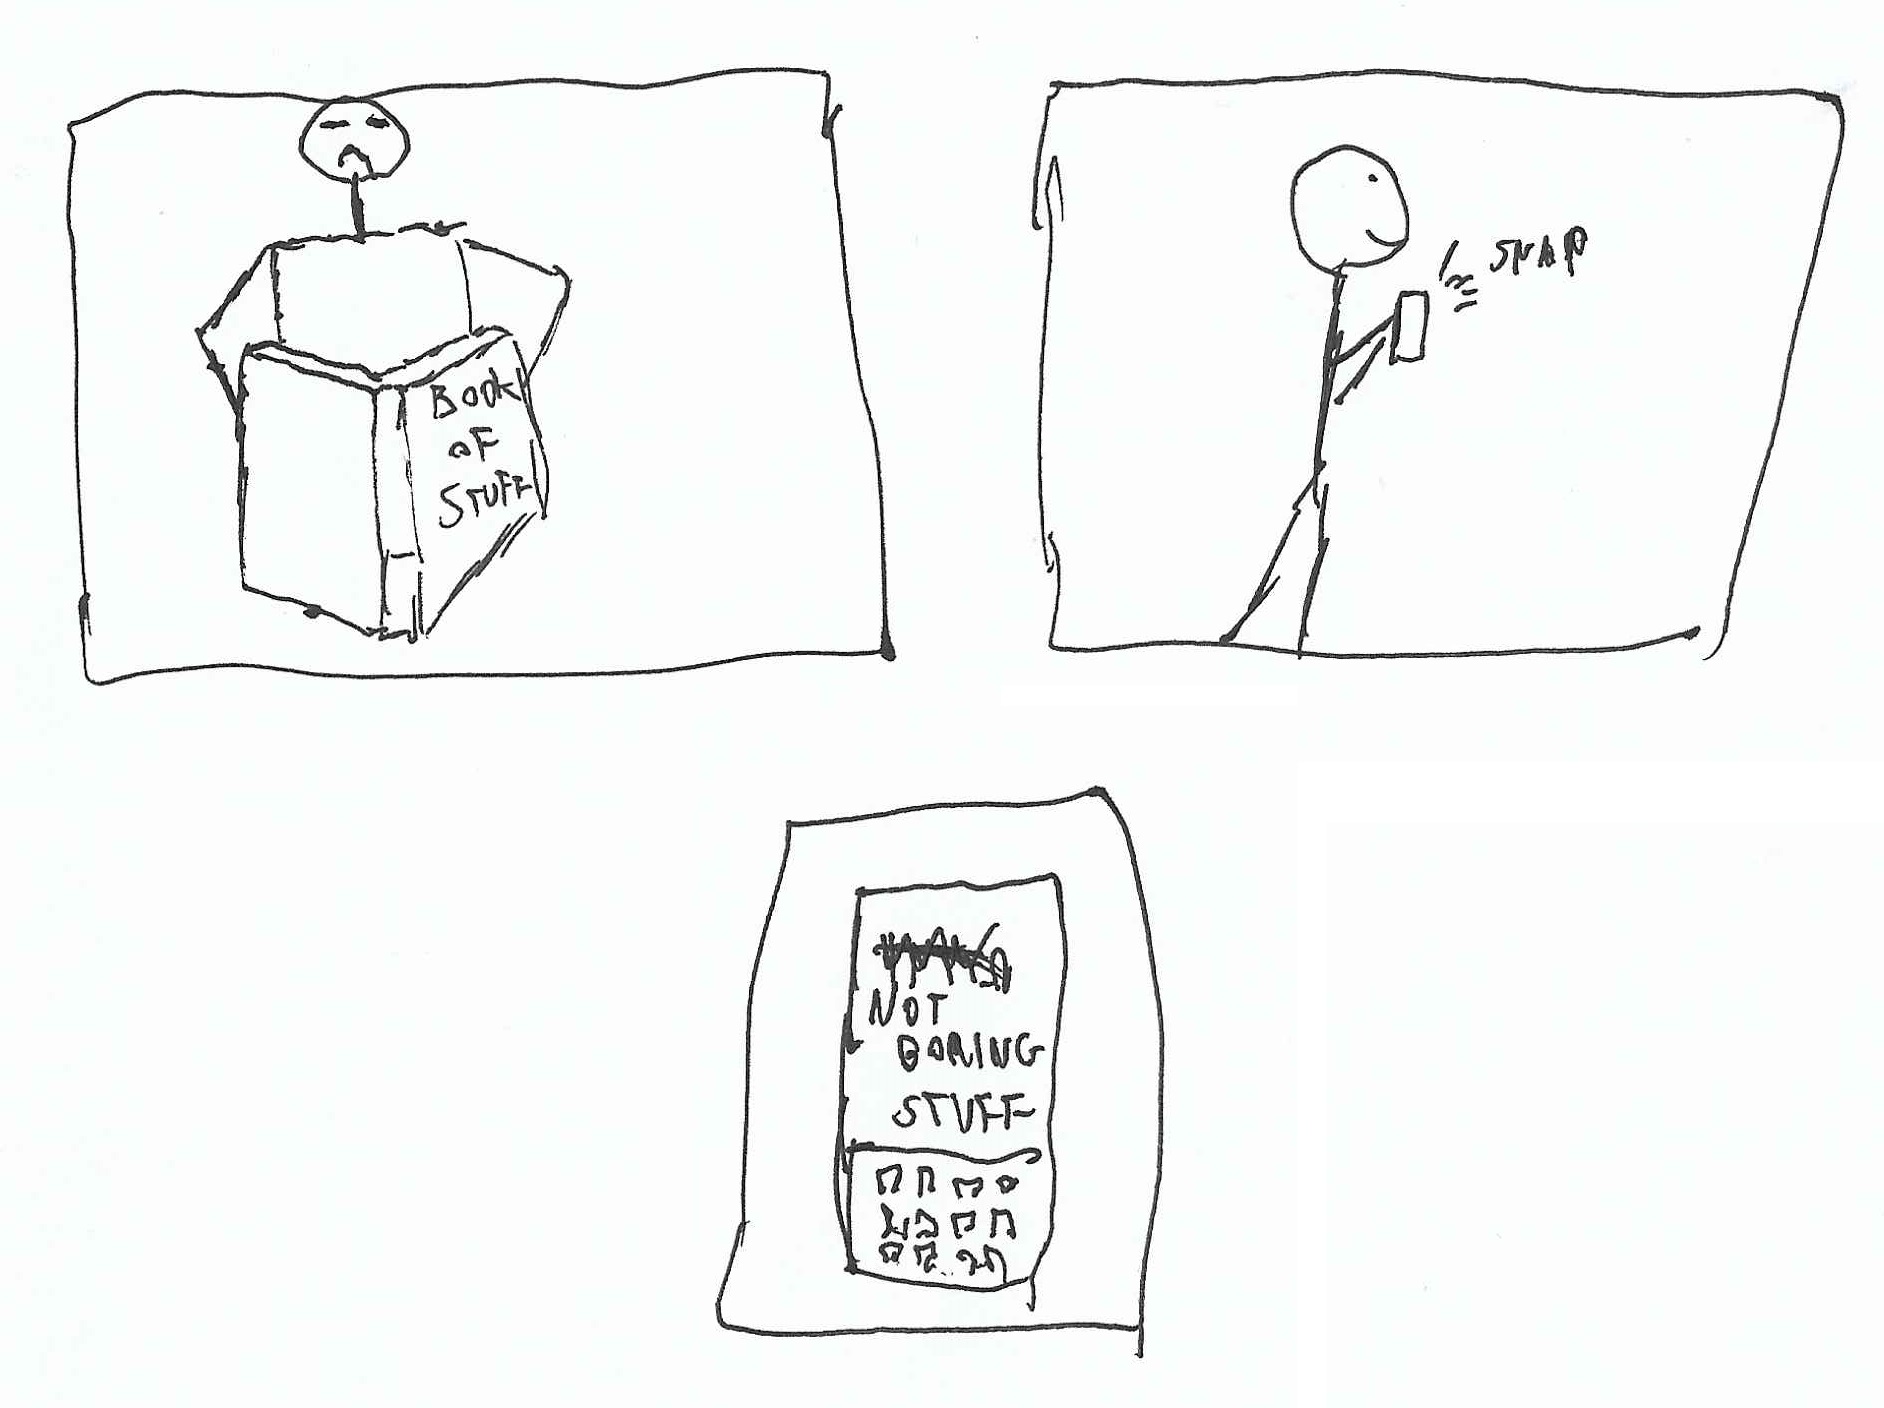 BOOK
OF
STUFF
SNAP
NOT
BORING
STUFF